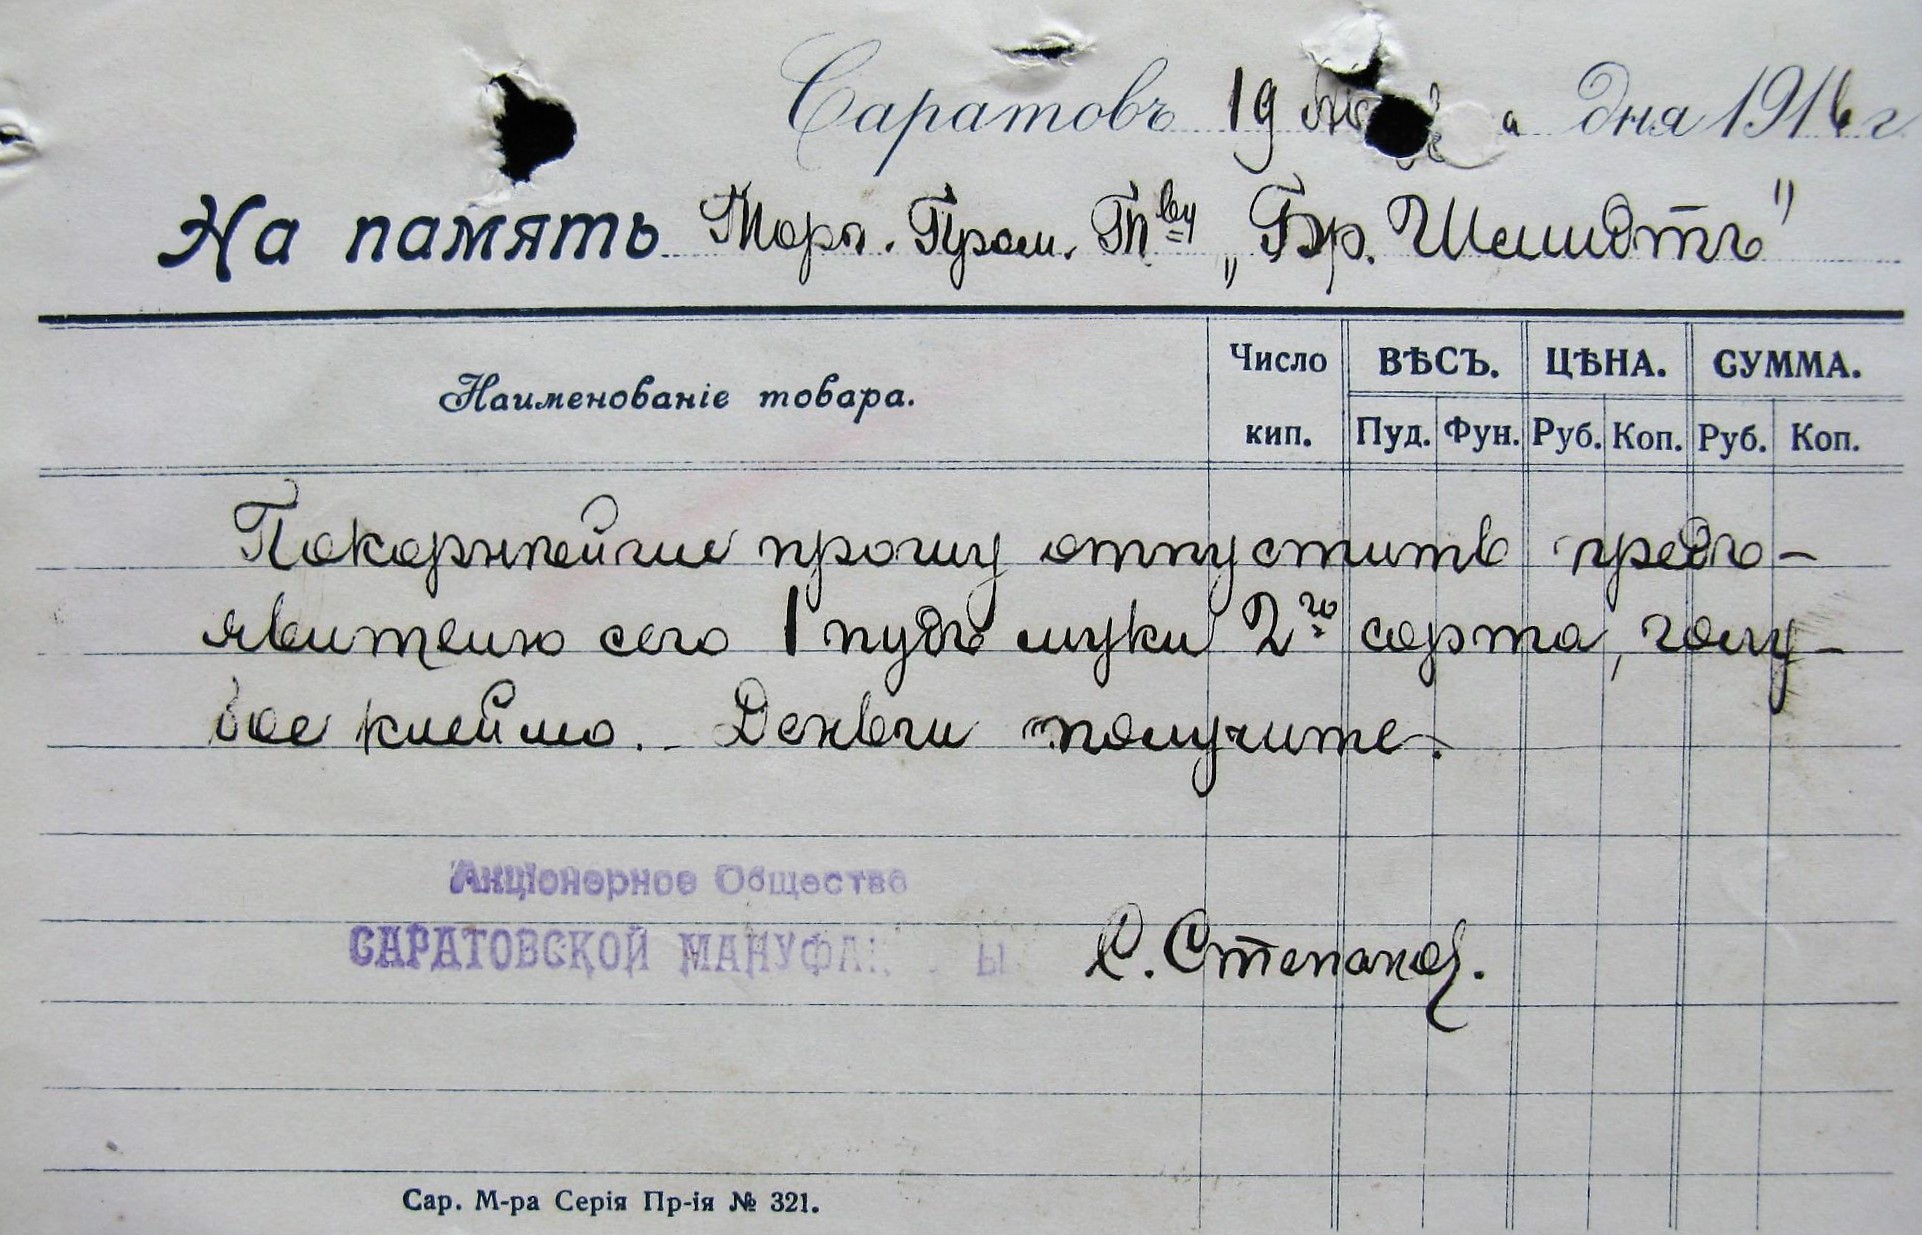 Саратовъ 19 дня 1916 г
На память Торг. Пром. Т<sup>ву</sup> „Бр. Шмидтъ"
Наименованіе товара. Число кип. ВѢСЪ. ЦѢНА. СУММА.
Пуд. Фун. Руб. Коп. Руб. Коп.
Покорнѣйше прошу отпустить предъ-
явителю сего 1 пудъ муки 2<sup>го</sup> сорта, голу-
бое клеймо. Деньги получите.
Акціонерное Общество
САРАТОВСКОЙ
С. Степанов.
Сар. М-ра Серія Пр-ія № 321.